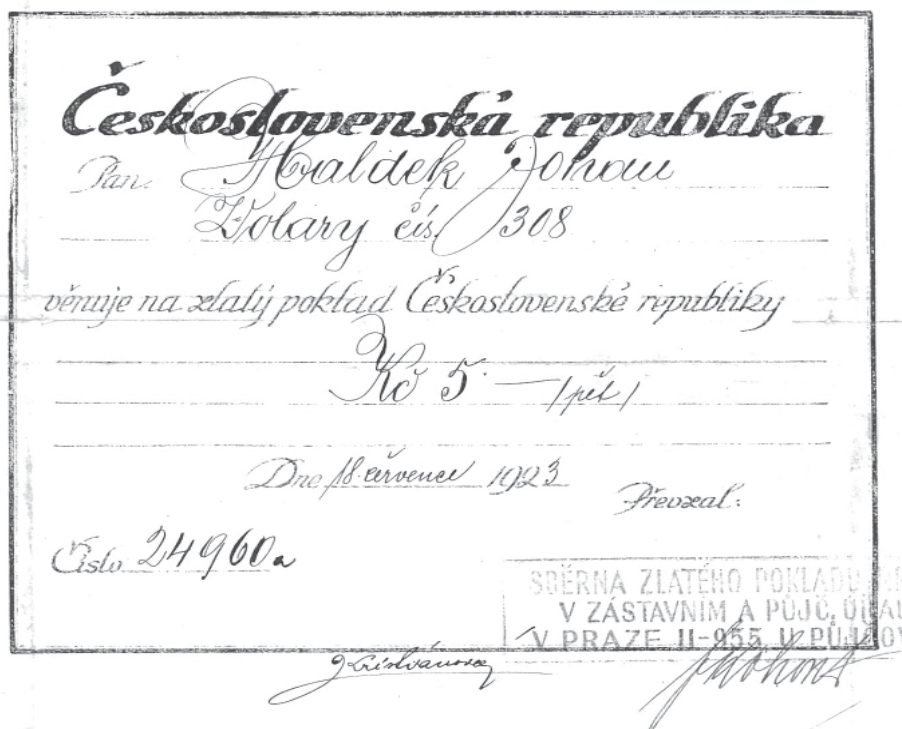 Československá republika
Pan. Haldek Johau
Volary čís. 308
věnuje na zlatý poklad Československé republiky
Kč 5.— /pět/
Dne 18. července 1923
Převzal:
Číslo 24960a
SBĚRNA ZLATÉHO POKLADU
V ZÁSTAVNÍM A PŮJČ.
V PRAZE II-955